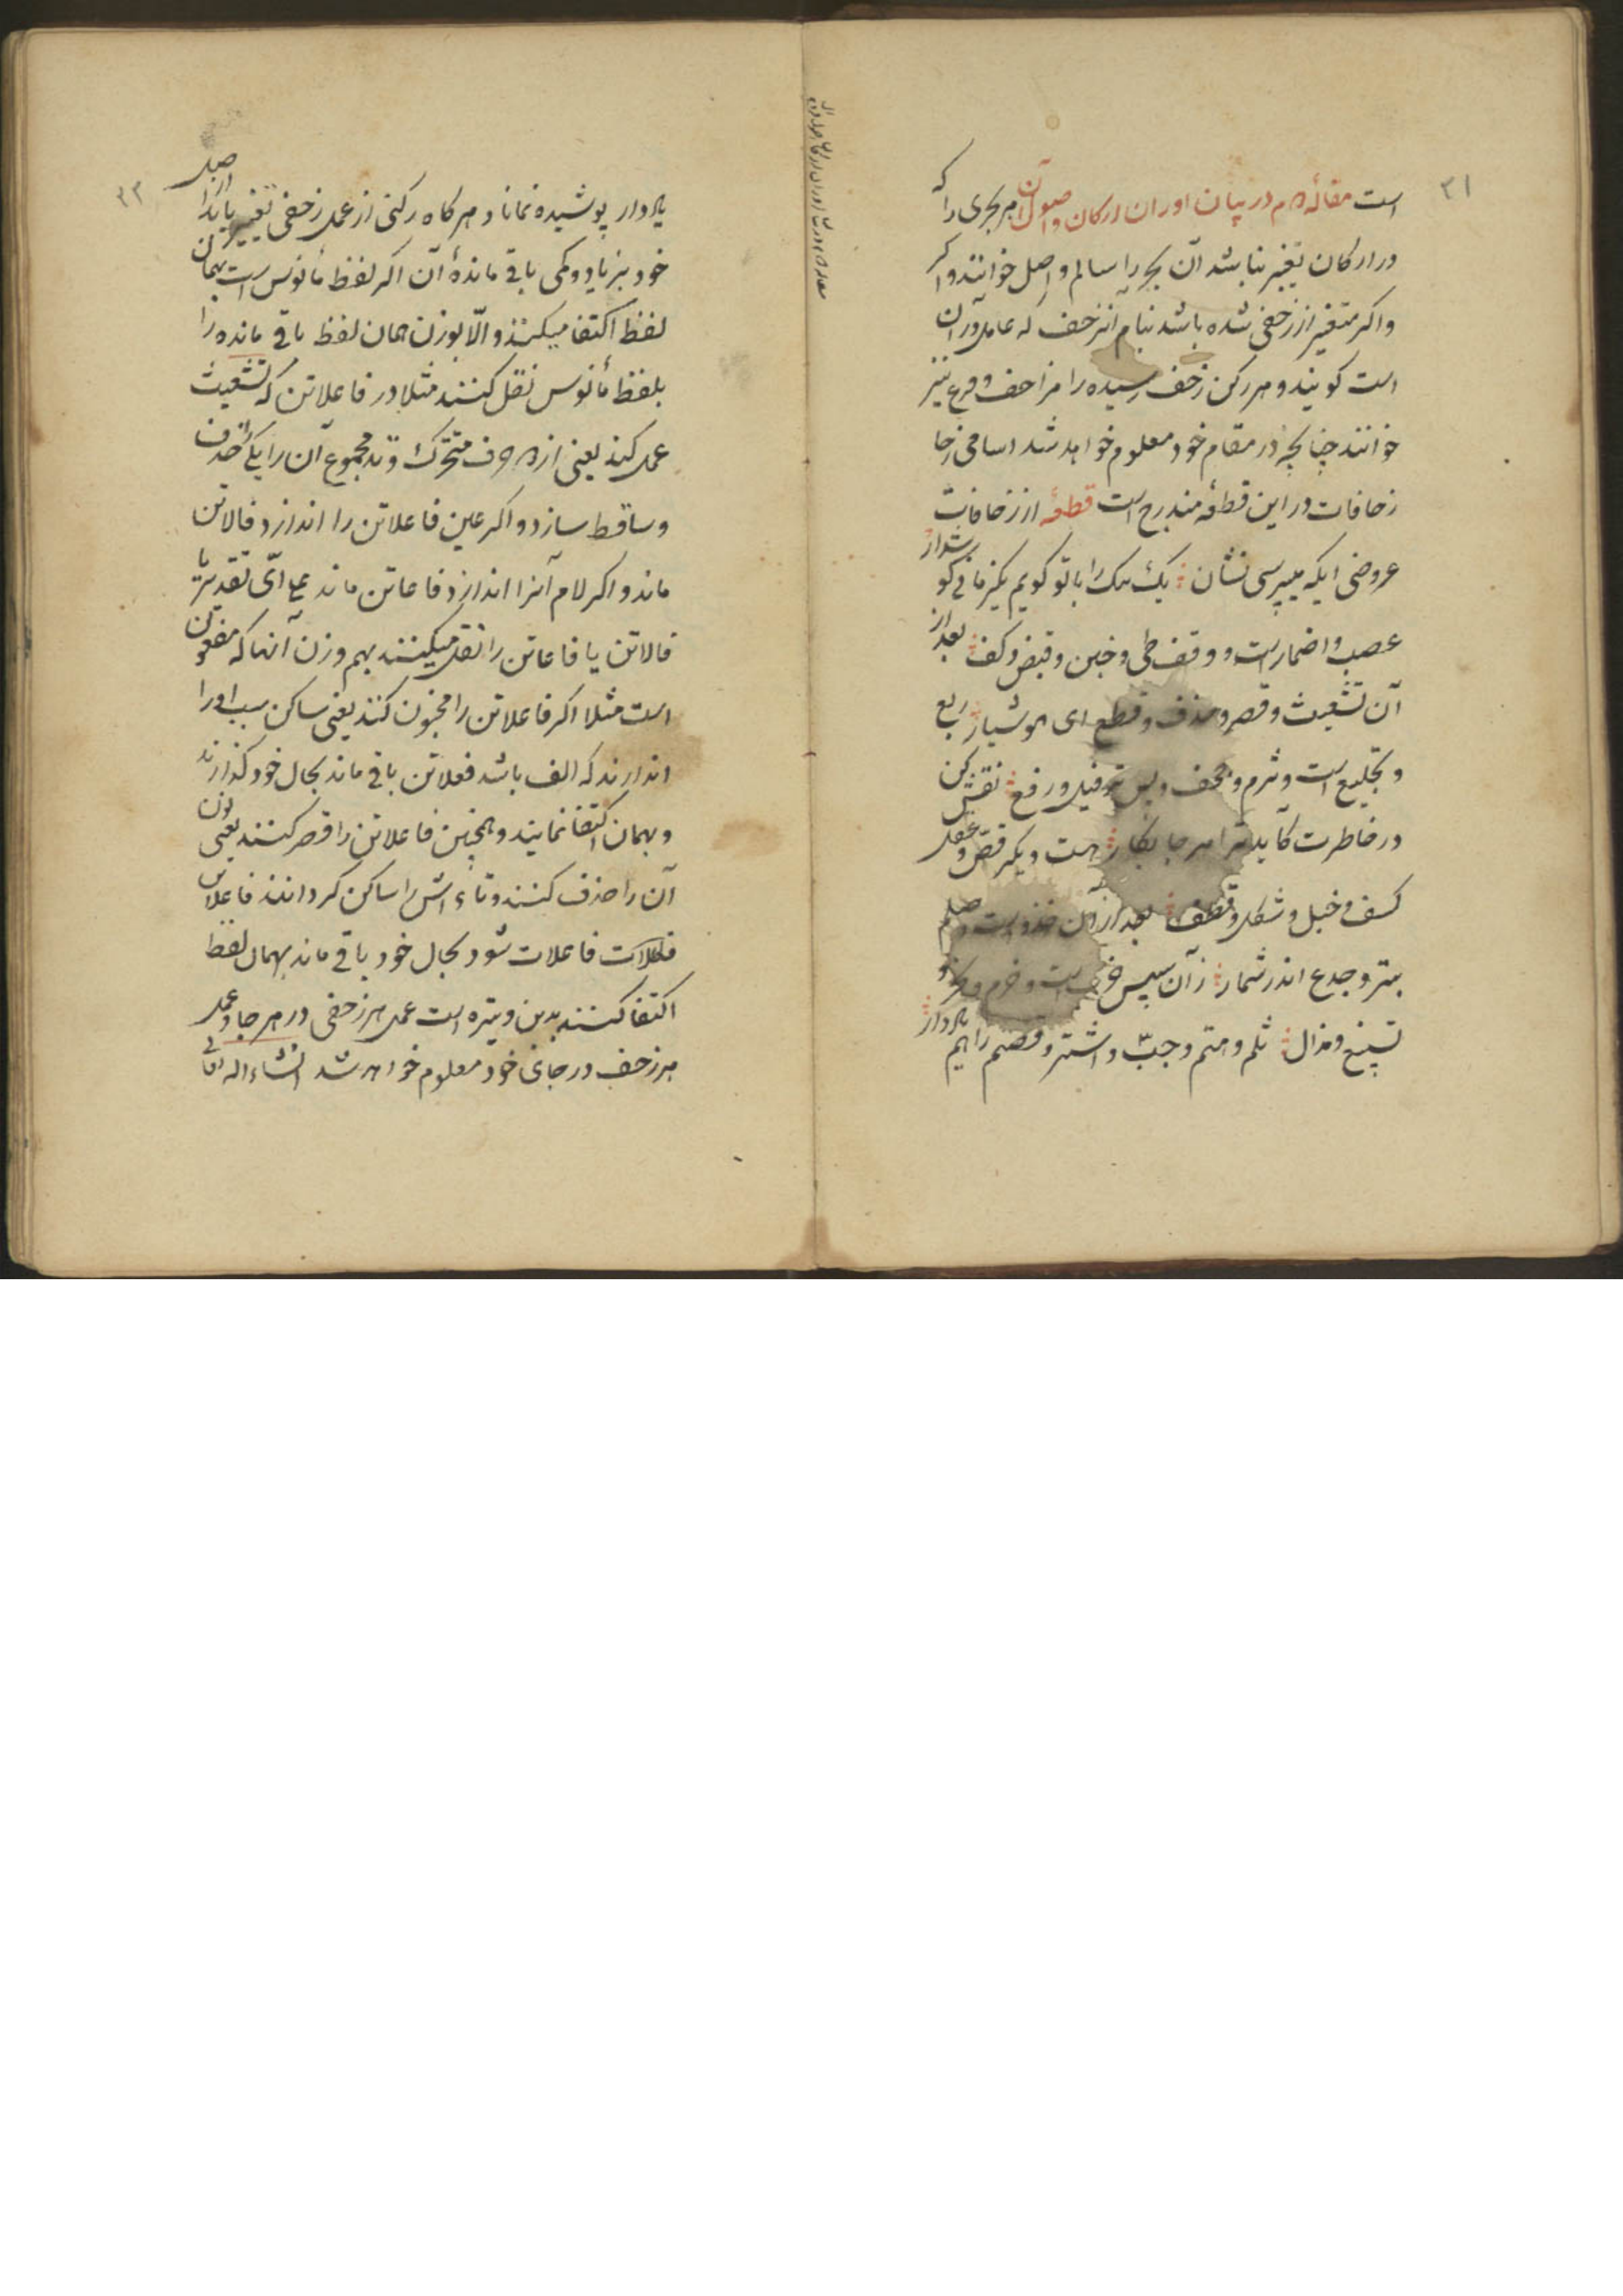 ۲۱
است مقالهٔ دوم در بیان اوزان ارکان و اصول آن هر بحری را که
در ارکان تغیر نباشد آن بحر را سالم و اصل خوانند و اگر
و اگر متغیر از زحفی شده باشد بنام آنزحف که عامل در آن
است کویند و هر رکن زحف رسیده را مزاحف و فرع نیز
خوانند چنانچه در مقام خود معلوم خواهد شد اسامی زحا
زحافات در این قطعه مندرج است قطعه از زحافات
عروضی ایکه میپرسی نشان یک بیک را با تو کویم یکزمانی کوشدار
عصب و اضمار است و وقف طی و خبن و قبض و کف بعد از
آن تشعیث و قصر و حذف و قطع ای هوشیار ربع
و تخلیع است و ثرم و جحف و پس ترفیل و رفع نقش کن
در خاطرت کآید ترا هر جا بکار هست دیگر نقص و عقل
کسف و خبل و شکل و قطف بعد از آن حذذ است و صلم
بتر و جدع اندر شمار ز آن سپس است و خرم و
تسبیغ و مذال ثلم و هتم و جبّ و اشتر و قصم را هم یاد دار
۲۲
یاد دار پوشیده نماناد هر کاه رکنی از عمل زحفی تغییر یابد از اصل
خود بزیاد و کمی باقی ماندهٔ آن اکر لفظ مأنوس است بهمان
لفظ اکتفا میکنند و الّا بوزن همان لفظ باقی مانده را
بلفظ مأنوس نقل کنند مثلا در فاعلاتن که تشعیث
عمل کند یعنی از دو حرف متحرک وتد مجموع آن را یکی حذف
و ساقط سازد و اکر عین فاعلاتن را اندازد فالاتن
ماند و اکر لام آنرا اندازد فاعاتن ماند علی ایّ تقدیر یا
فالاتن یا فاعاتن را نقل میکنند بهم وزن آنها که مفعولن
است مثلا اکر فاعلاتن را مخبون کنند یعنی ساکن سبب او را
اندازند که الف باشد فعلاتن باقی ماند بحال خود کذارند
و بهمان اکتفا نمایند و همچنین فاعلاتن را قصر کنند یعنی نون
آن را حذف کنند و تاء اش را ساکن کردانند فاعلاتن
فاعلات شود بحال خود باقی ماند بهمان لفظ
اکتفا کنند بدین وتیره است عمل هر زحفی در هر جا و عمل
هر زحف در جای خود معلوم خواهد شد انشاءاله تعالی